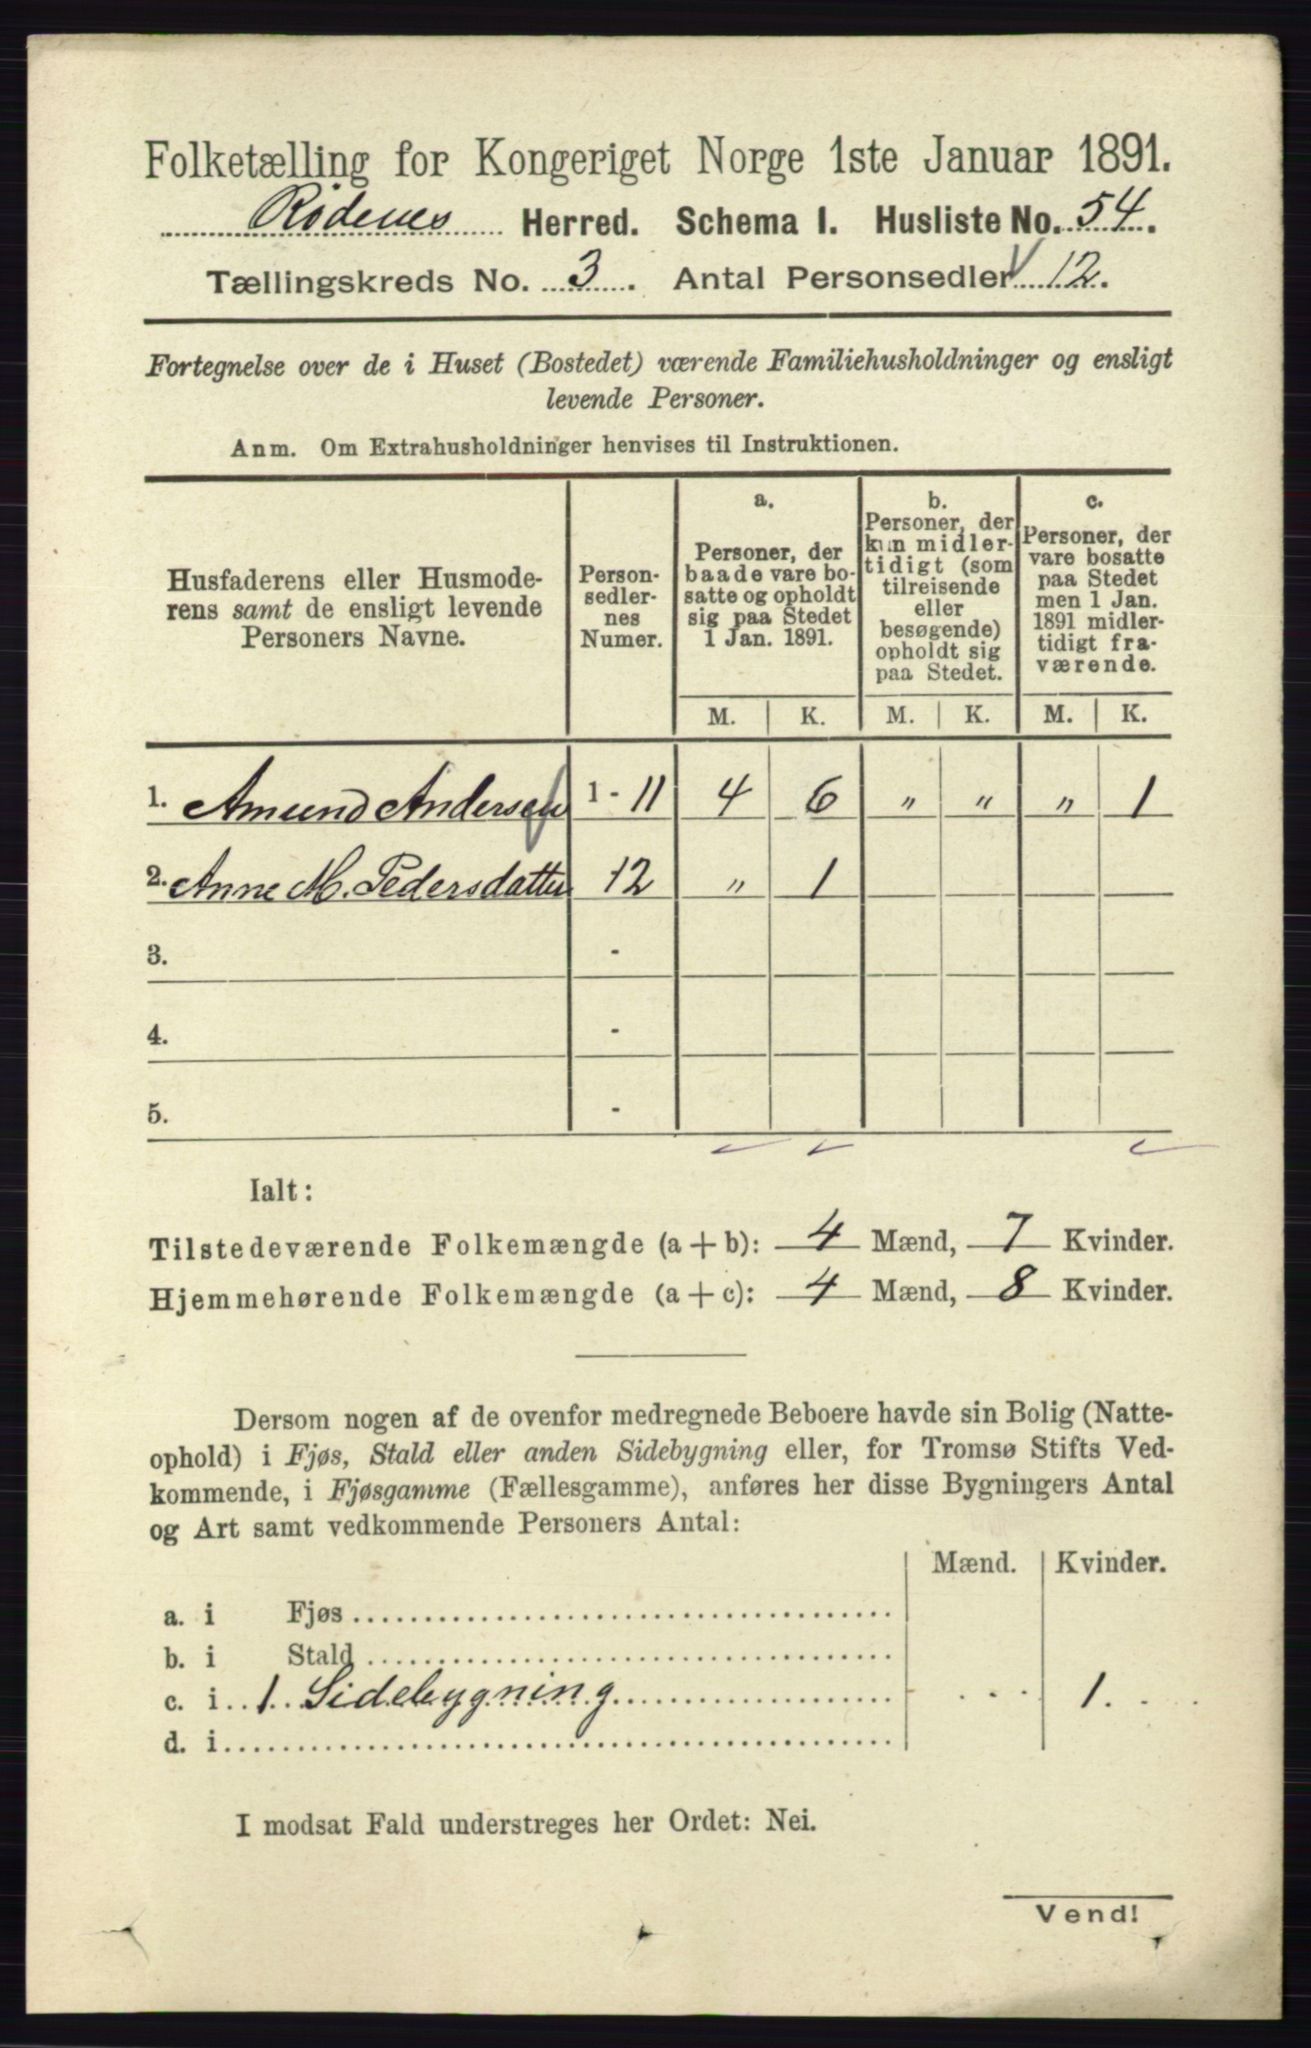 Folketælling for Kongeriget Norge 1ste Januar 1891.
Rødenes Herred. Schema I. Husliste No. 54.
Tællingskreds No. 3. Antal Personsedler 12.
Fortegnelse over de i Huset (Bostedet) værende Familiehusholdninger og ensligt
levende Personer.
Anm. Om Extrahusholdninger henvises til Instruktionen.
Husfaderens eller Husmode-
rens samt de ensligt levende
Personers Navne.
Person-
sedler-
nes
Numer.
a.
Personer, der
baade vare bo-
satte og opholdt
sig paa Stedet
1 Jan. 1891.
b.
Personer, der
kun midler-
tidigt (som
tilreisende
eller
besøgende)
opholdt sig
paa Stedet.
c.
Personer, der
vare bosatte
paa Stedet
men 1 Jan.
1891 midler-
tidigt fra-
værende.
M. K. M. K. M. K.
1. Amund Andersen 1 - 11 4 6 " " " 1
2. Anne M. Pedersdatter 12 " 1
3. -
4. -
5. -
Ialt:
Tilstedeværende Folkemængde (a + b): 4 Mænd, 7 Kvinder.
Hjemmehørende Folkemængde (a + c): 4 Mænd, 8 Kvinder.
Dersom nogen af de ovenfor medregnede Beboere havde sin Bolig (Natte-
ophold) i Fjøs, Stald eller anden Sidebygning eller, for Tromsø Stifts Ved-
kommende, i Fjøsgamme (Fællesgamme), anføres her disse Bygningers Antal
og Art samt vedkommende Personers Antal:
Mænd. Kvinder.
a. i Fjøs
b. i Stald
c. i 1 Sidebygning 1.
d. i
I modsat Fald understreges her Ordet: Nei.
Vend!